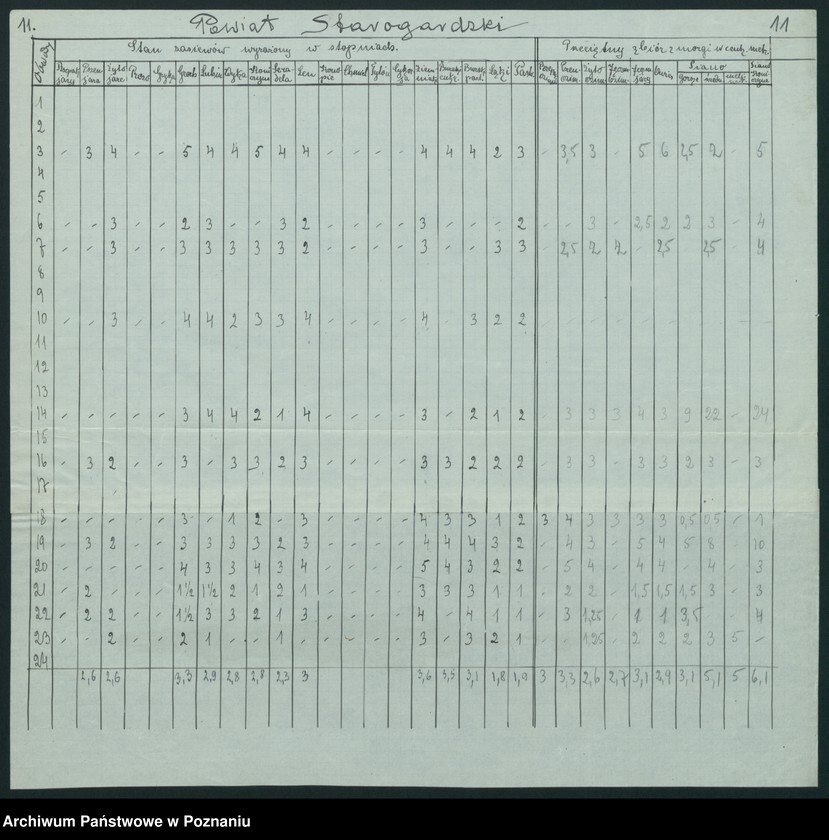 11. Powiat Starogardzki 11
Stan zasiewów wyrażony w stopniach. Przeciętny zbiór z morgi w cent. metr.
Proso Groch Łubin Wyka Len Chmiel Siano
1
2
3 - 3 4 - - 5 4 4 5 4 4 - - - - 4 4 4 2 3 - 3,5 3 - 5 6 2,5 2 - 5
4
5
6 - - 3 - - 2 3 - - 3 2 - - - - 3 - - - 2 - - 3 - 2,5 2 2 3 - 4
7 - - 3 - - 3 3 3 3 3 2 - - - - 3 - - 3 3 - 2,5 2 2 - 2,5 - 2,5 4
8
9
10 - - 3 - - 4 4 2 3 3 4 - - - - 4 - 3 2 2
11
12
13
14 - - - - - 3 4 4 2 1 4 - - - - 3 - 2 1 2 - 3 3 3 4 3 9 22 - 24
15
16 - 3 2 - - 3 - 3 3 2 3 - - - - 3 3 2 2 2 - 3 3 - 3 3 2 3 - 3
17
18 - - - - - 3 - 1 2 - 3 - - - - 4 3 3 1 2 3 4 3 3 3 3 0,5 0,5 - 1
19 - 3 2 - - 3 3 3 3 2 3 - - - - 4 4 4 3 2 - 4 3 - 5 4 5 8 - 10
20 - - - - - 4 3 3 4 3 4 - - - - 5 4 3 2 2 - 5 4 - 4 4 - 4 - 3
21 - 2 - - - 1½ 1½ 2 1 2 1 - - - - 3 3 3 1 1 - 2 2 - 1,5 1,5 1,5 3 - 3
22 - 2 2 - - 1½ 3 3 2 1 3 - - - - 4 - 4 1 1 - 3 1,25 - 1 1 3,5 4
23 - - 2 - - 2 1 - - 1 - - - - - 3 - 3 2 1 - - 1,25 - 2 2 2 3 5 -
24
2,6 2,6 3,3 2,9 2,8 2,8 2,3 3 3,6 3,5 3,1 1,8 1,9 3 3,3 2,6 2,7 3,1 2,9 3,1 5,1 5 6,1
Archiwum Państwowe w Poznaniu